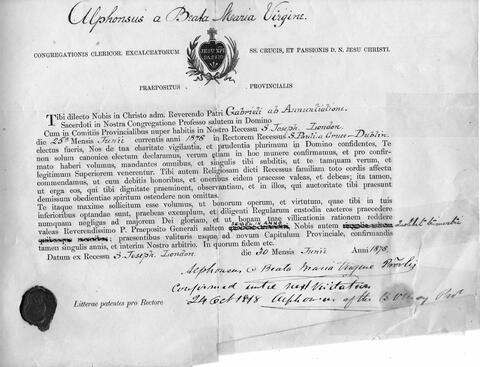 Alphonsus a Beata Maria Virgine.
CONGREGATIONIS CLERICOR. EXCALCEATORUM SS. CRUCIS, ET PASSIONIS D. N. JESU CHRISTI.
JESU XPI
PASSIO
PRAEPOSITUS PROVINCIALIS
Tibi dilecto Nobis in Christo adm. Reverendo Patri Gabrieli ab Annuntiatione.
Sacerdoti in Nostra Congregatione Professo salutem in Domino
Cum in Comitiis Provincialibus super habitis in Nostro Recessu S. Joseph, London.
die 25ª Mensis Junii currentis anni 1878 in Rectorem Recessus S. Pauli a Cruce - Dublin.
electus fueris, Nos de tua charitate vigilantia, et prudentia plurimum in Domino confidentes, Te
non solum canonice electum declaramus, verum etiam in hoc munere confirmamus, et pro confir-
mato haberi volumus, mandantes omnibus, et singulis tibi subditis, ut te tamquam verum, et
legitimum Superiorem venerentur. Tibi autem Religiosam dicti Recessus familiam toto cordis affectu
commendamus, ut cum debitis honoribus, et oneribus eidem praecesse valeas, et debeas; ita tamen,
ut erga eos, qui tibi dignitate praeminent, observantiam, et in illos, qui auctoritate tibi praesunt
demissum obedientiae spiritum ostendere non omittas.
Te itaque maxime sollicitum esse volumus, ut bonorum operum, et virtutum, quae tibi in tuis
inferioribus optandae sunt, praebeas exemplum, et diligenti Regularum custodia caeteros praecedere
numquam negligas ad majorem Dei gloriam, et ut bonam tuae villicationis rationem reddere
valeas Reverendissimo P. Praeposito Generali saltem Nobis autem
praesentibus valituris usque ad novum Capitulum Provinciale, confirmandis
tamen singulis annis, et interim Nostro arbitrio. In quorum fidem etc.
Datum ex Recessu S. Joseph, London. die 30 Mensis Junii Anni 1878.
Alphonsus a Beata Maria Virgine
Confirmed until next Visitation
24 Oct 1878 Alphonsus of the
Litterae patentes pro Rectore